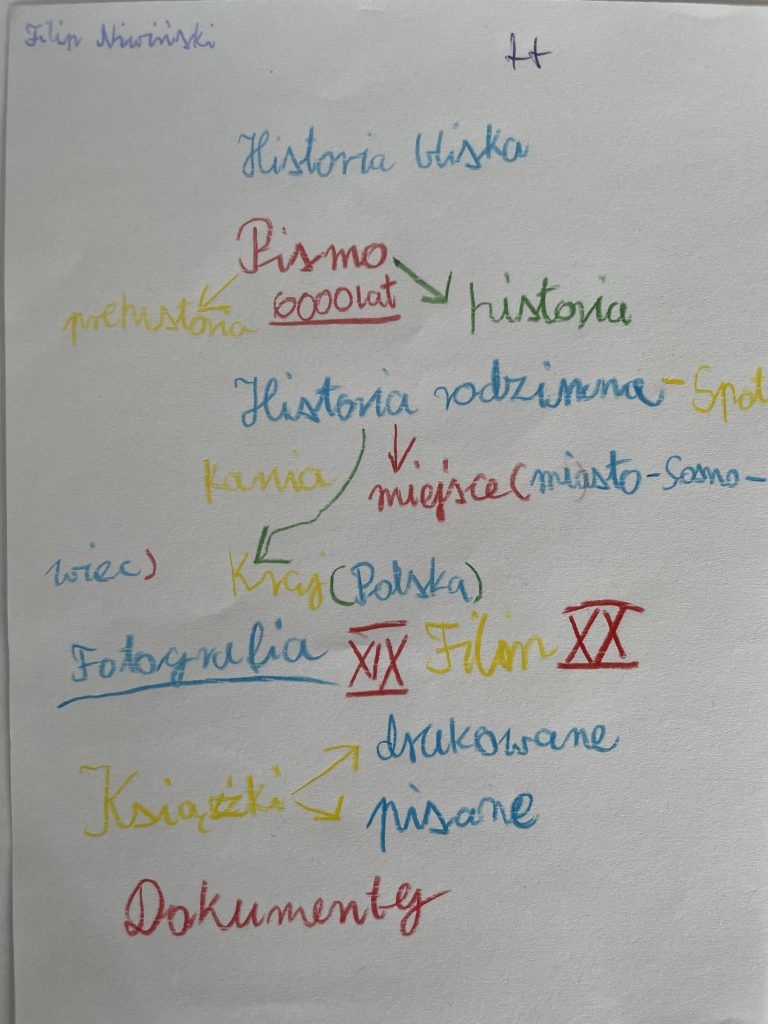 Filip Niwiński
++
Historia bliska
Pismo
prehistoria 6000 lat historia
Historia rodzinna - Spot
kania miejsce (miasto - Sosno -
wiec) Kraj (Polska)
Fotografia XIX Film XX
drukowane
Książki
pisane
Dokumenty